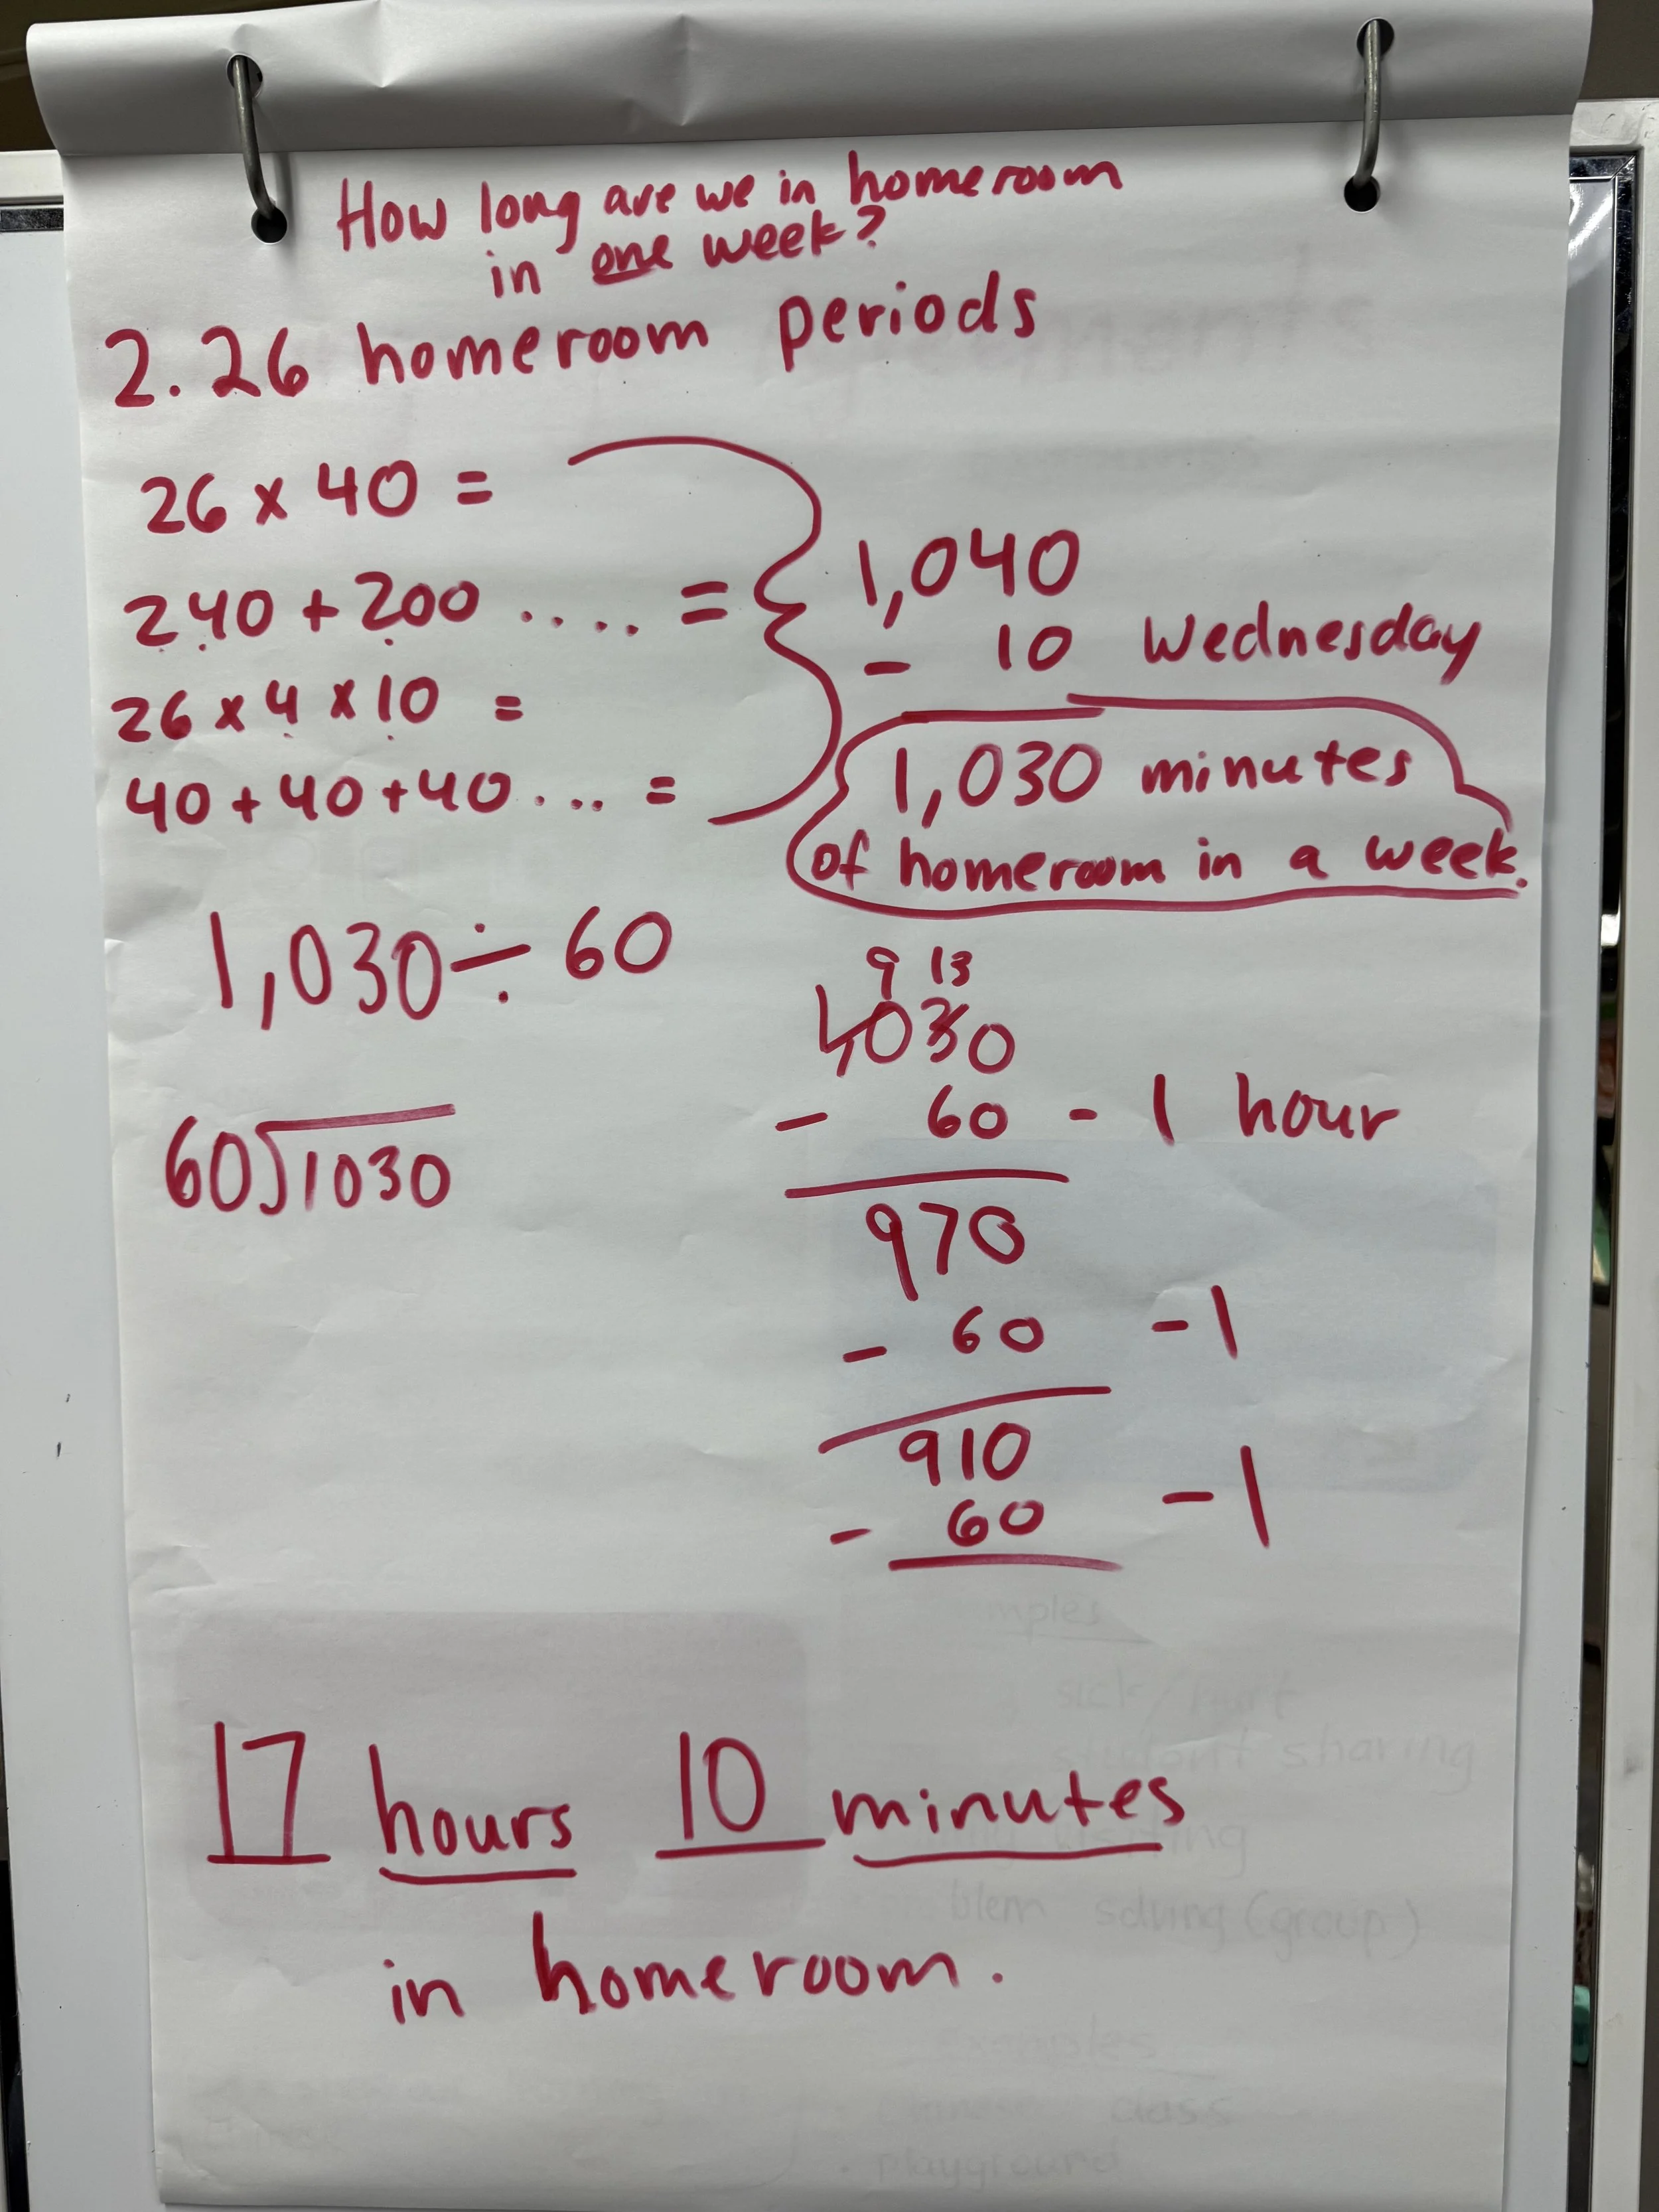 How long are we in homeroom
in one week?
2. 26 homeroom periods
26 x 40 =
240 + 200 .... =
26 x 4 x 10 =
40 + 40 + 40 ... =
1,040
- 10 Wednesday
1,030 minutes
of homeroom in a week.
1,030 ÷ 60
60)1030
9 13
1,030
- 60 - 1 hour
970
- 60 - 1
910
- 60 - 1
17 hours 10 minutes
in homeroom.
mples
sick/hurt
student sharing
blem solving (group)
examples
class
playground